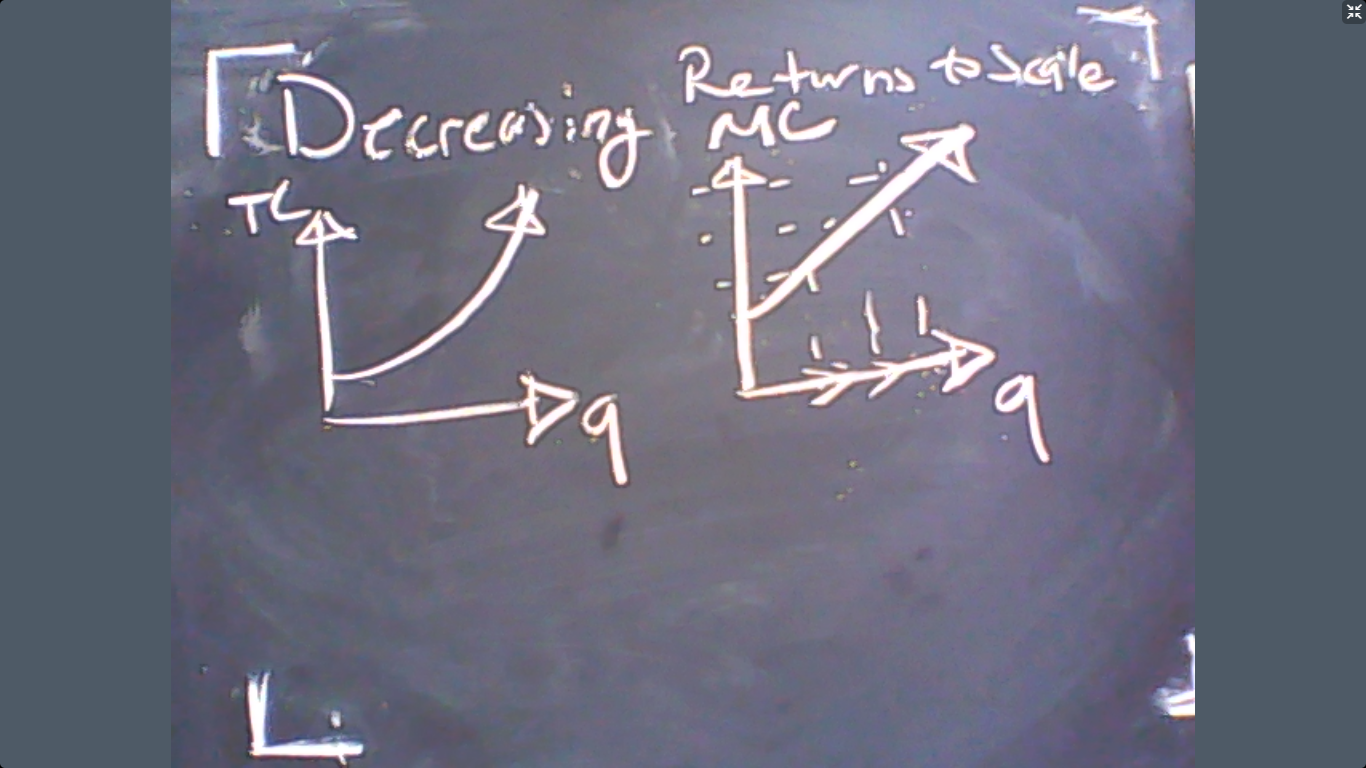 Decreasing Returns to Scale
TC
q
MC
q